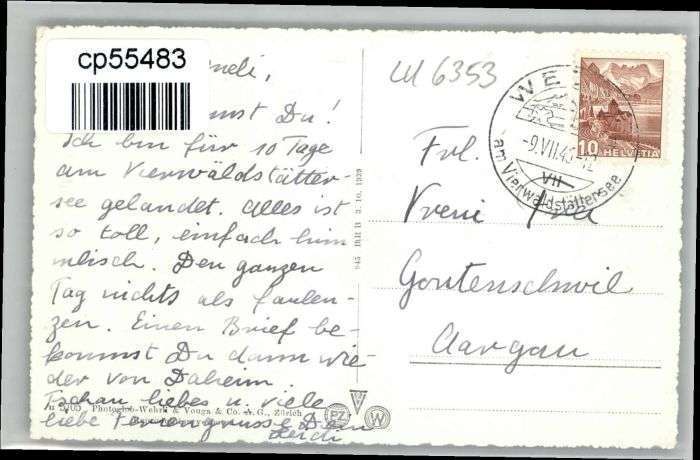 cp55483
neli,
mst Du!
Ich bin für 10 Tage
am Vierwaldstätter-
see gelandet. Alles ist
so toll, einfach him
mlisch. Den ganzen
Tag nichts als faulen-
zen. Einen Brief be-
kommst Du dann wie-
der von Daheim
Tschau liebes u. viele
liebe Feriengrüsse Dein
Photoglob-Wehrli & Vouga & Co. A.G., Zürich
PZ
W
3. 10. 1939
LU 6353
WE
-9.VII.4
VII
am Vierwaldstättersee
10 HELVETIA
Frl.
Vreni Frei
Gontenschwil
Aargau